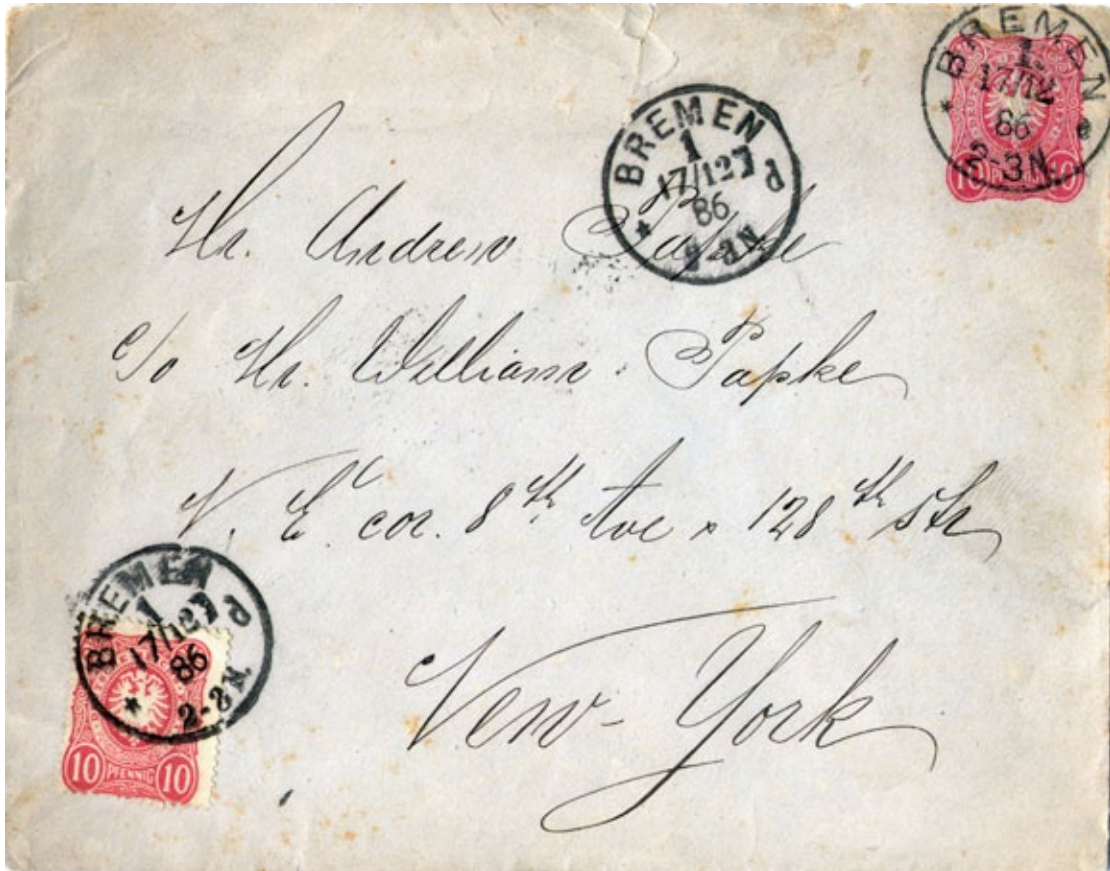 BREMEN
1.
17/12
86
2-3N.
* e
10 PFENNIG 10
BREMEN
1
17/12
86
N.
* d
Hr. Andrew Papke
c/o Hr. William Papke
N. E. cor. 8th Ave & 128th Str
New-York
BREMEN
1
17/12
86
2-3N.
* d
10 PFENNIG 10